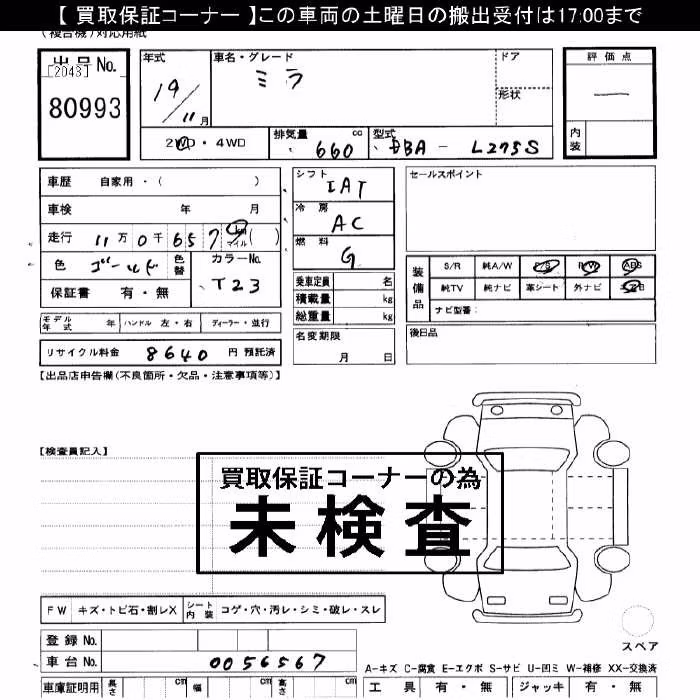 【 買取保証コーナー 】この車両の土曜日の搬出受付は17:00まで
(複合機)対応用紙
出品No.
[2043]
80993
年式
19/11月
車名・グレード
ミラ
ドア
形状
評価点
―
内装
2WD・4WD
排気量 660 cc
型式 DBA - L275S
車歴 自家用・( )
車検 年 月
走行 11万0千657 km マイル ( )
色 ゴールド 色替
カラーNo. T23
保証書 有・無
シフト IAT
冷房 AC
燃料 G
乗車定員 名
積載量 kg
総重量 kg
セールスポイント
装備品
S/R 純A/W P/S P/W ABS
純TV 純ナビ 革シート 外ナビ
ナビ型番:
モデル年式 年 ハンドル 左・右 ディーラー・並行
リサイクル料金 8640 円 預託済
名変期限
月 日
後日品
【出品店申告欄(不良箇所・欠品・注意事項等)】
【検査員記入】
買取保証コーナーの為
未検査
FW キズ・トビ石・割レX シート内装 コゲ・穴・汚レ・シミ・破レ・スレ
登録No.
車台No. 0056567
車庫証明用 長さ cm 幅 cm 高さ cm
スペア
A-キズ C-腐食 E-エクボ S-サビ U-凹ミ W-補修 XX-交換済
工具 有・無 ジャッキ 有・無